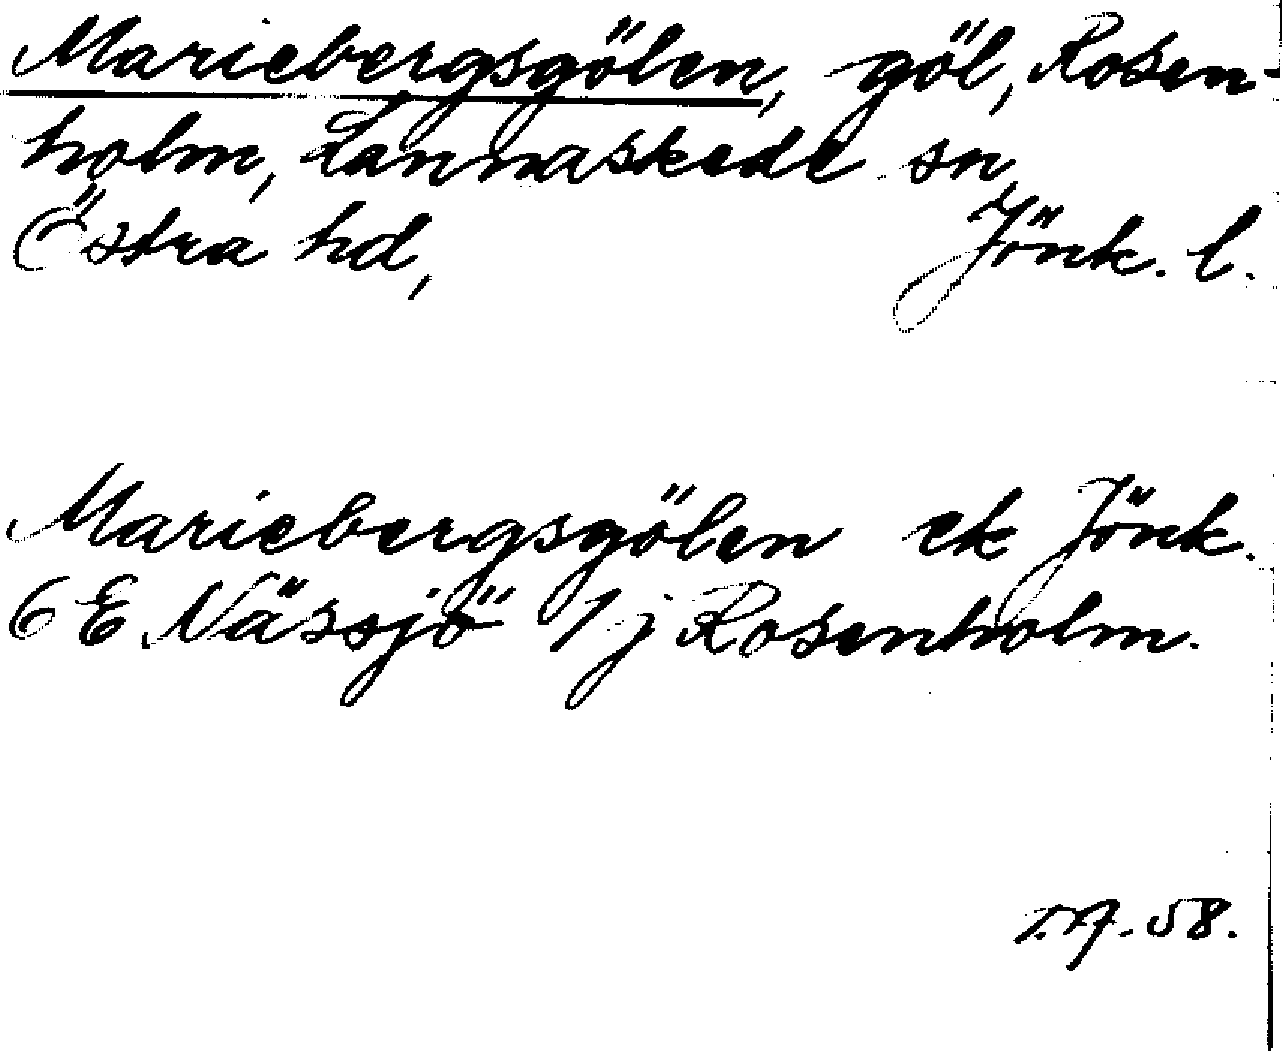 Mariebergsgölen, göl, Rosen-
holm, Lannaskede sn,
Östra hd, Jönk. l.
Mariebergsgölen ek Jönk.
6 E Nässjö 1 j Rosenholm.
58.